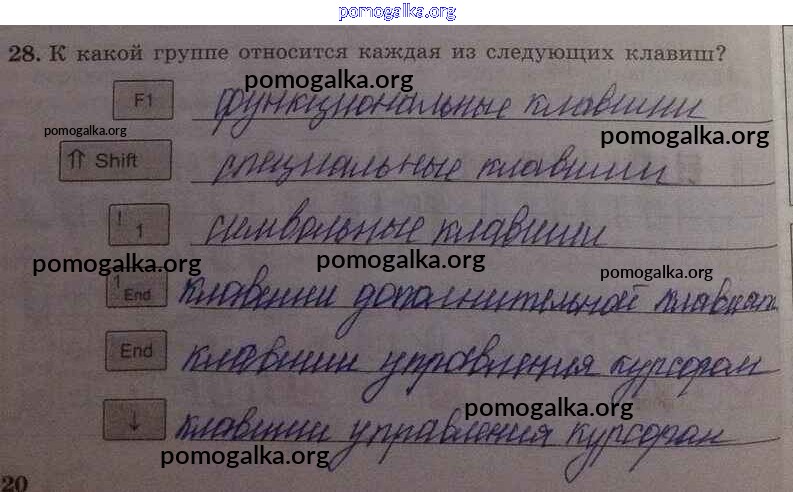 pomogalka.org
28. К какой группе относится каждая из следующих клавиш?
pomogalka.org
F1 функциональные клавиши
pomogalka.org
pomogalka.org
⇑ Shift специальные клавиши
! 1 символьные клавиши
pomogalka.org
pomogalka.org
pomogalka.org
1 End клавиши дополнительной
End клавиши управления курсором
pomogalka.org
↓ клавиши управления курсором
pomogalka.org
20